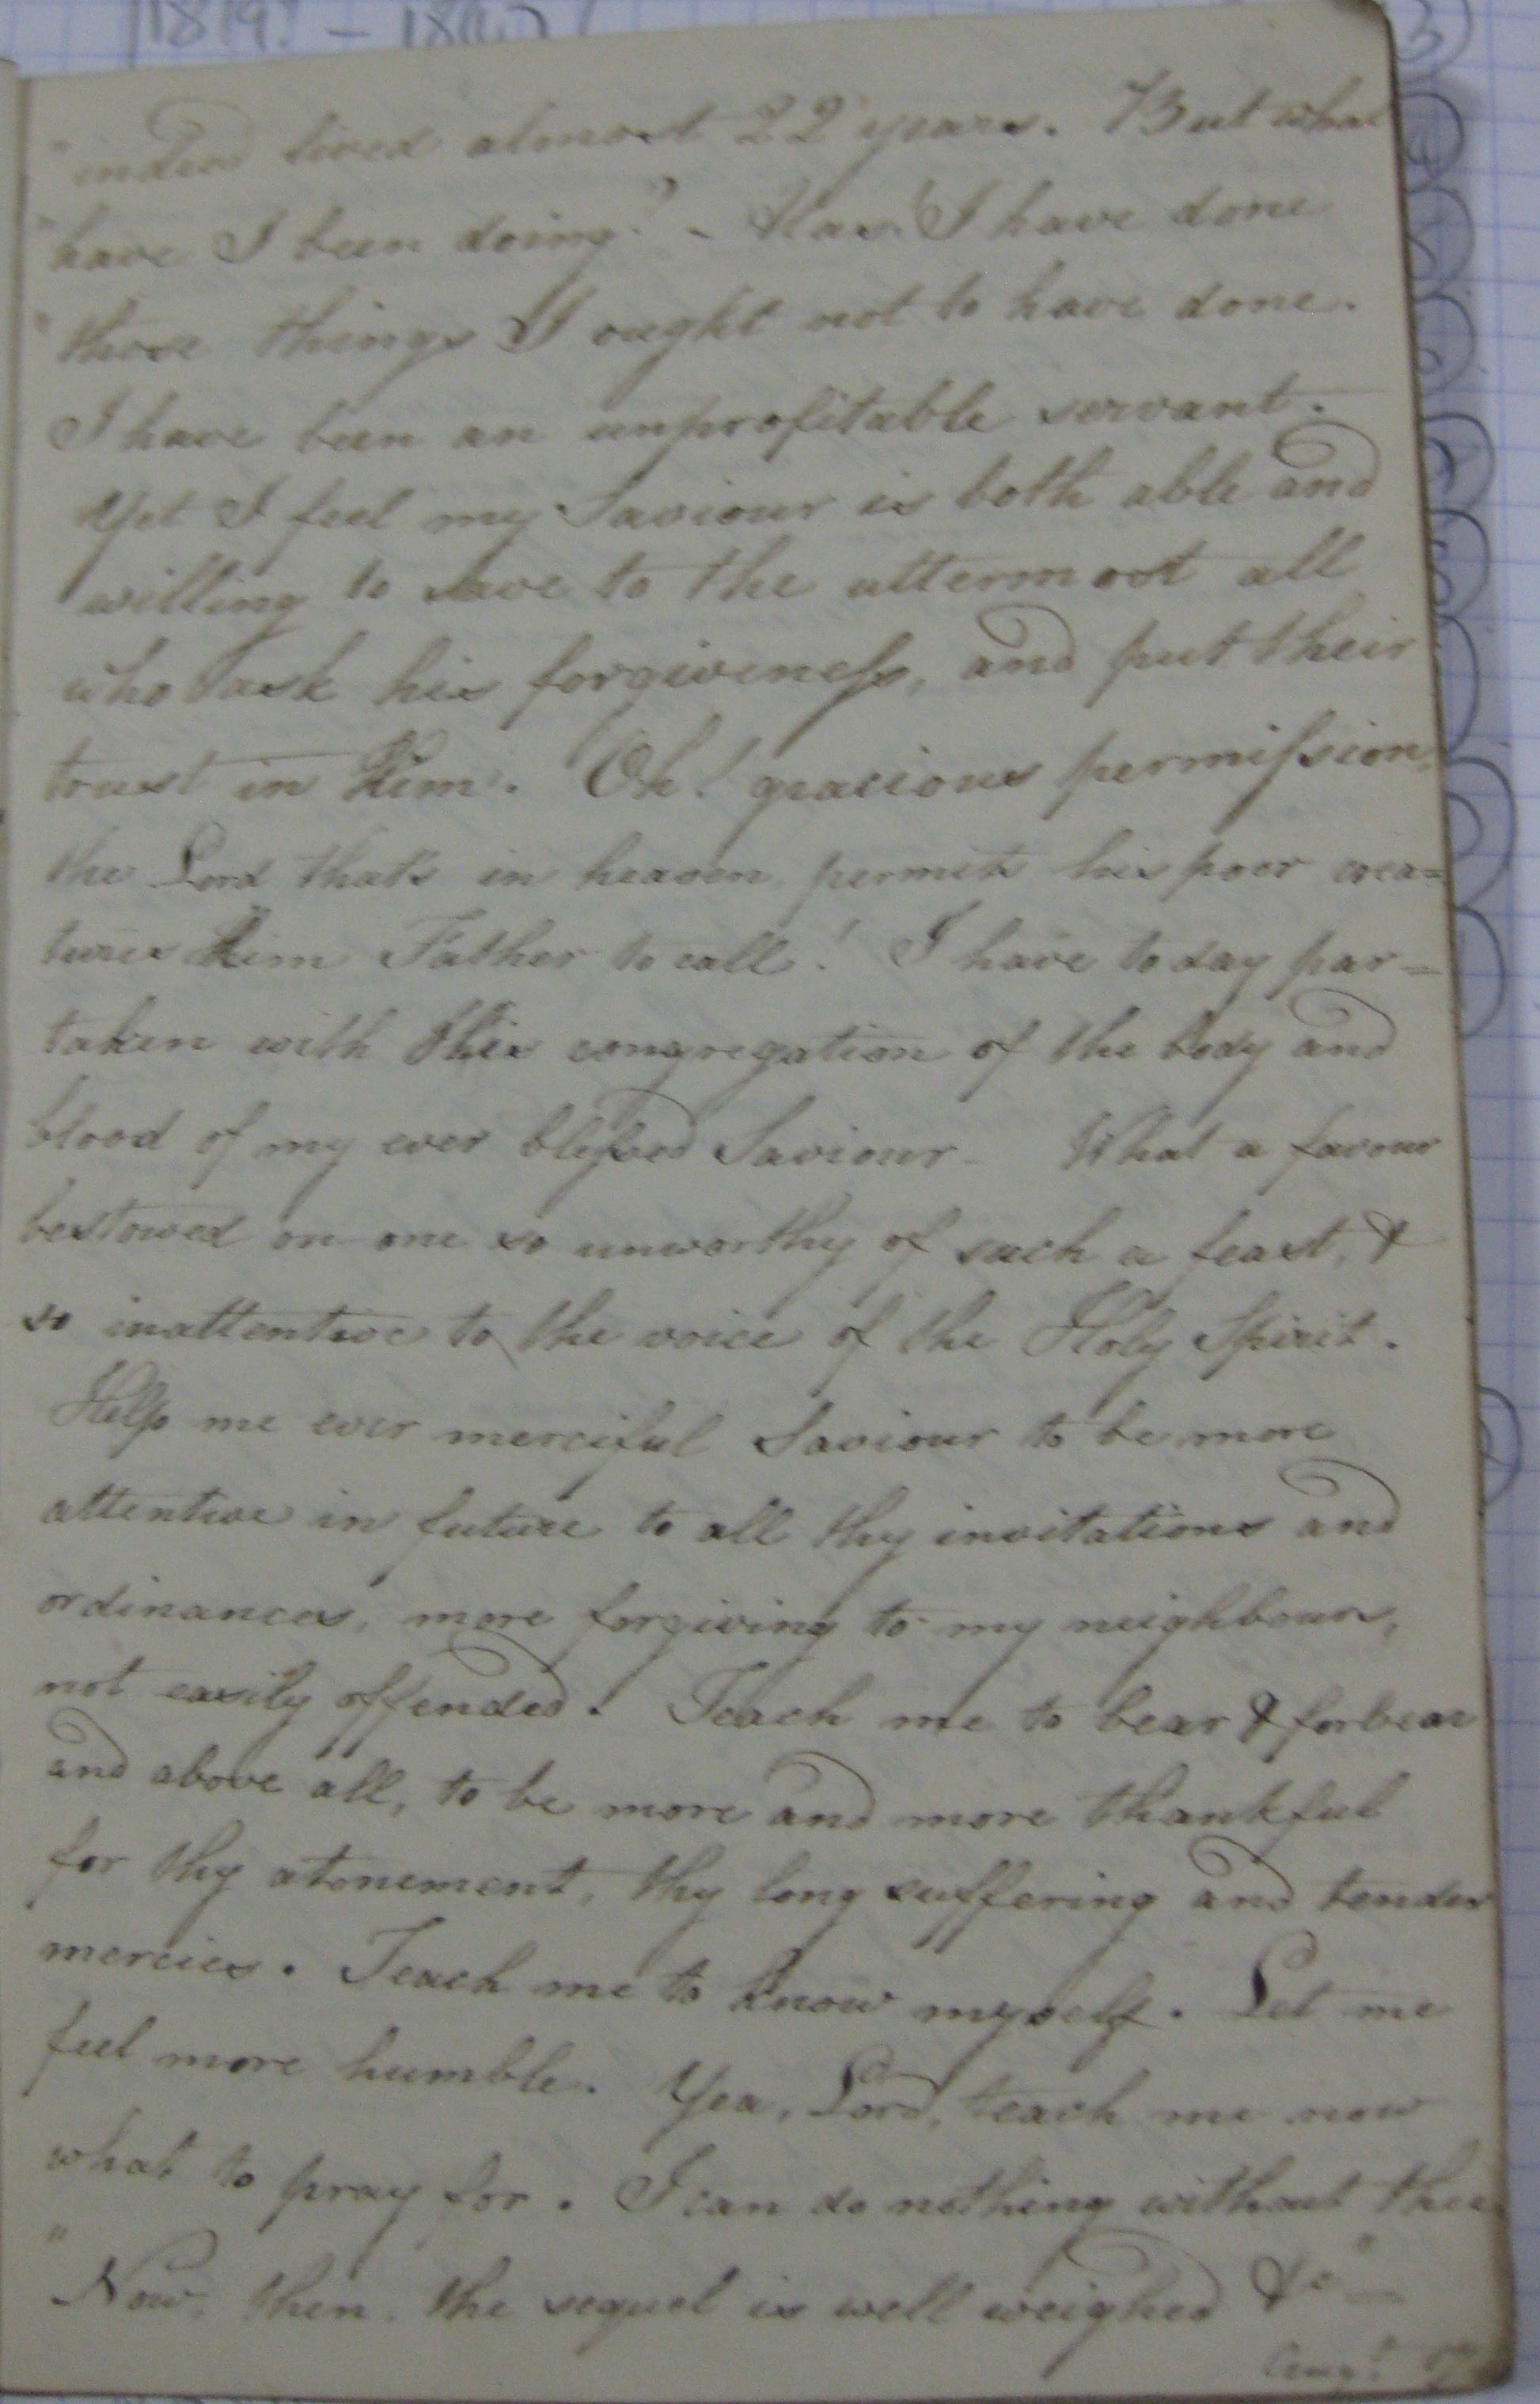 "indeed lived almost 22 years. But what
"have I been doing? - Alas! I have done
"those things I ought not to have done.
I have been an unprofitable servant.
Yet I feel my Saviour is both able and
willing to save to the uttermost all
who ask his forgiveness, and put their
trust in Him. Oh! gracious permission,
the Lord that's in heaven permits his poor crea=
tures Him Father to call! I have today par=
taken with this congregation of the body and
blood of my ever blessed Saviour - What a favour
bestowed on one so unworthy of such a feast, &
so inattentive to the voice of the Holy Spirit.
Help me ever merciful Saviour to be more
attentive in future to all thy invitations and
ordinances, more forgiving to my neighbours,
not easily offended. Teach me to bear & forbear
and above all, to be more and more thankful
for thy atonement, thy long suffering and tender
mercies. Teach me to know myself. Let me
feel more humble. Yea, Lord, teach me now
what to pray for. I can do nothing without thee.
"Now, then, the sequel is well weighed &c" —
Augt